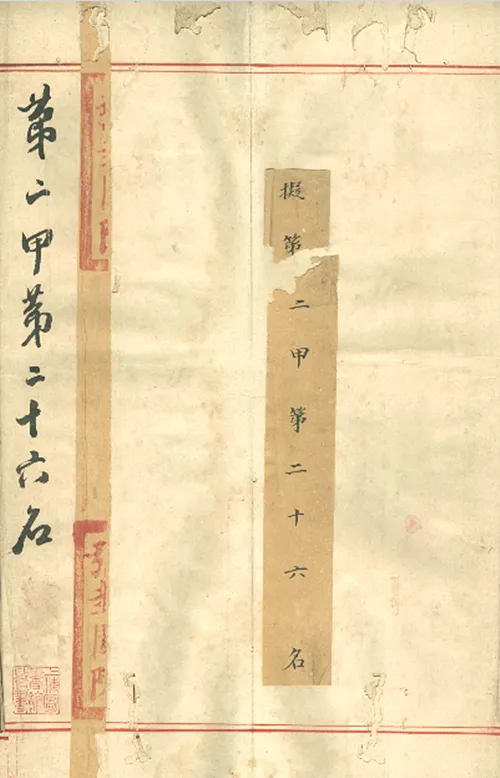 擬第二甲第二十六名
第二甲第二十六名